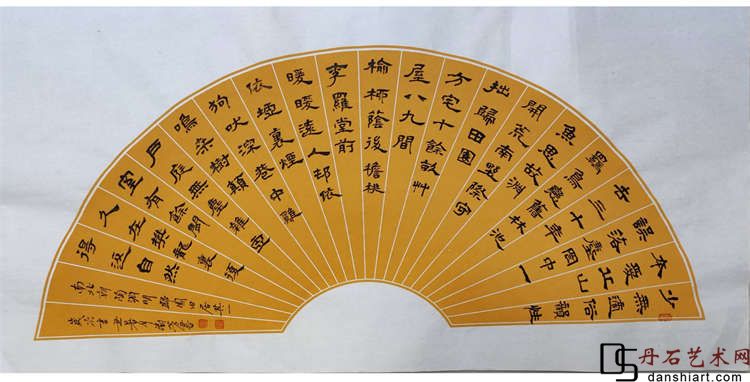 少無適俗韻性
本愛丘山
誤落塵網中一
去三十年
羈鳥戀舊林池
魚思故淵
開荒南野際守
拙歸園田
方宅十餘畝艸
屋八九間
榆柳蔭後檐桃
李羅堂前
曖曖遠人邨依
依墟裏煙
狗吠深巷中雞
鳴桑樹顛
戶庭無塵雜虛
室有餘閒
久在樊籠裏復
得返自然
南北朝陶淵明歸園田居其一
歲次辛丑
丹石艺术网
danshiart.com